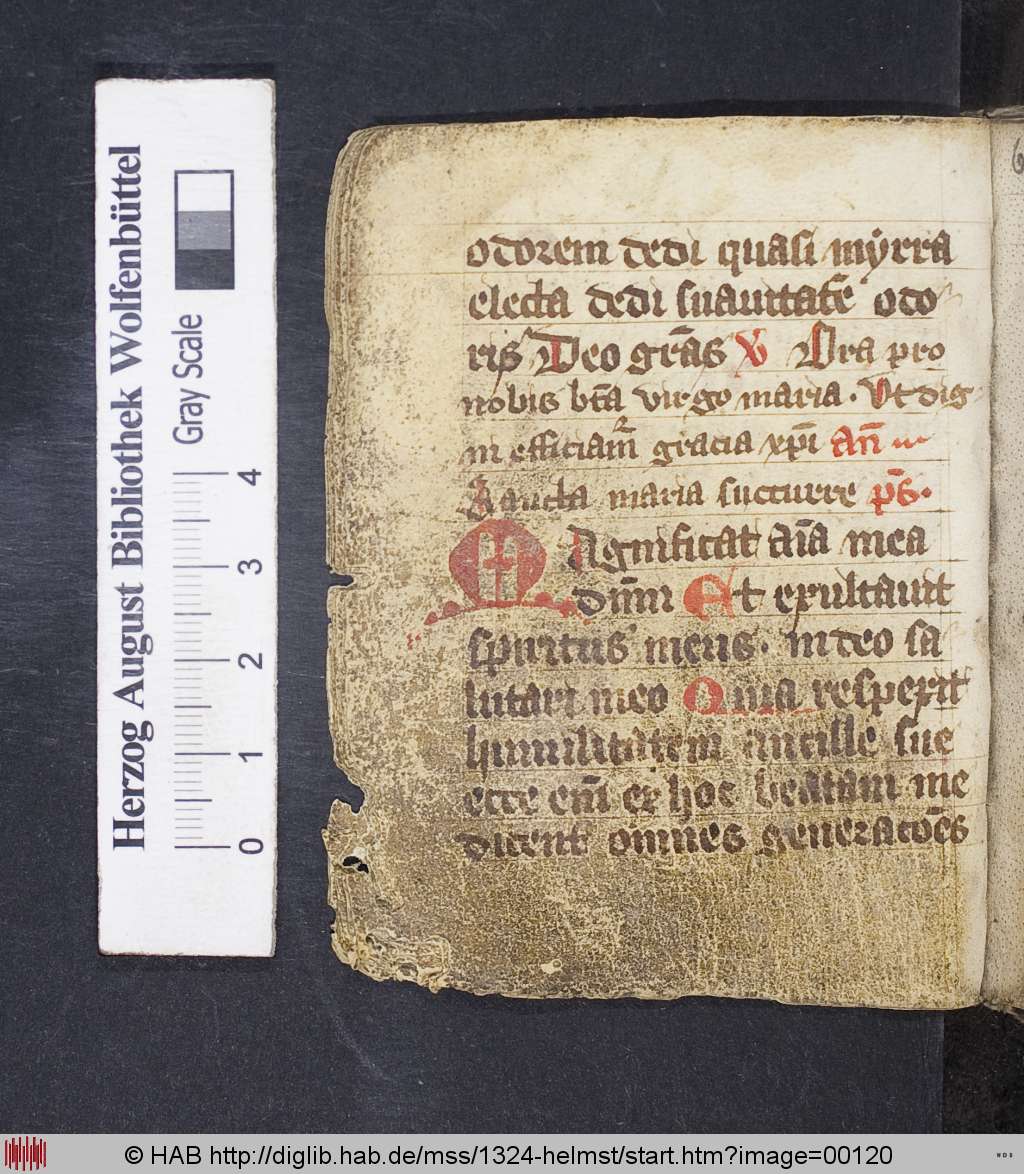 Herzog August Bibliothek Wolfenbüttel
Gray Scale
0 1 2 3 4
odorem dedi quasi myrra
electa dedi suauitatē odo
ris Deo grās V Ora pro
nobis btā virgo maria. Vt dig
ni efficiamr gracia xpi an̄
Sancta maria succurre ps.
Magnificat aīa mea
dn̄m Et exultauit
spiritus meus. in deo sa
lutari meo Quia respexit
humilitatem ancille sue
ecce eni ex hoc beatam me
dicent omnes generacōēs
© HAB http://diglib.hab.de/mss/1324-helmst/start.htm?image=00120